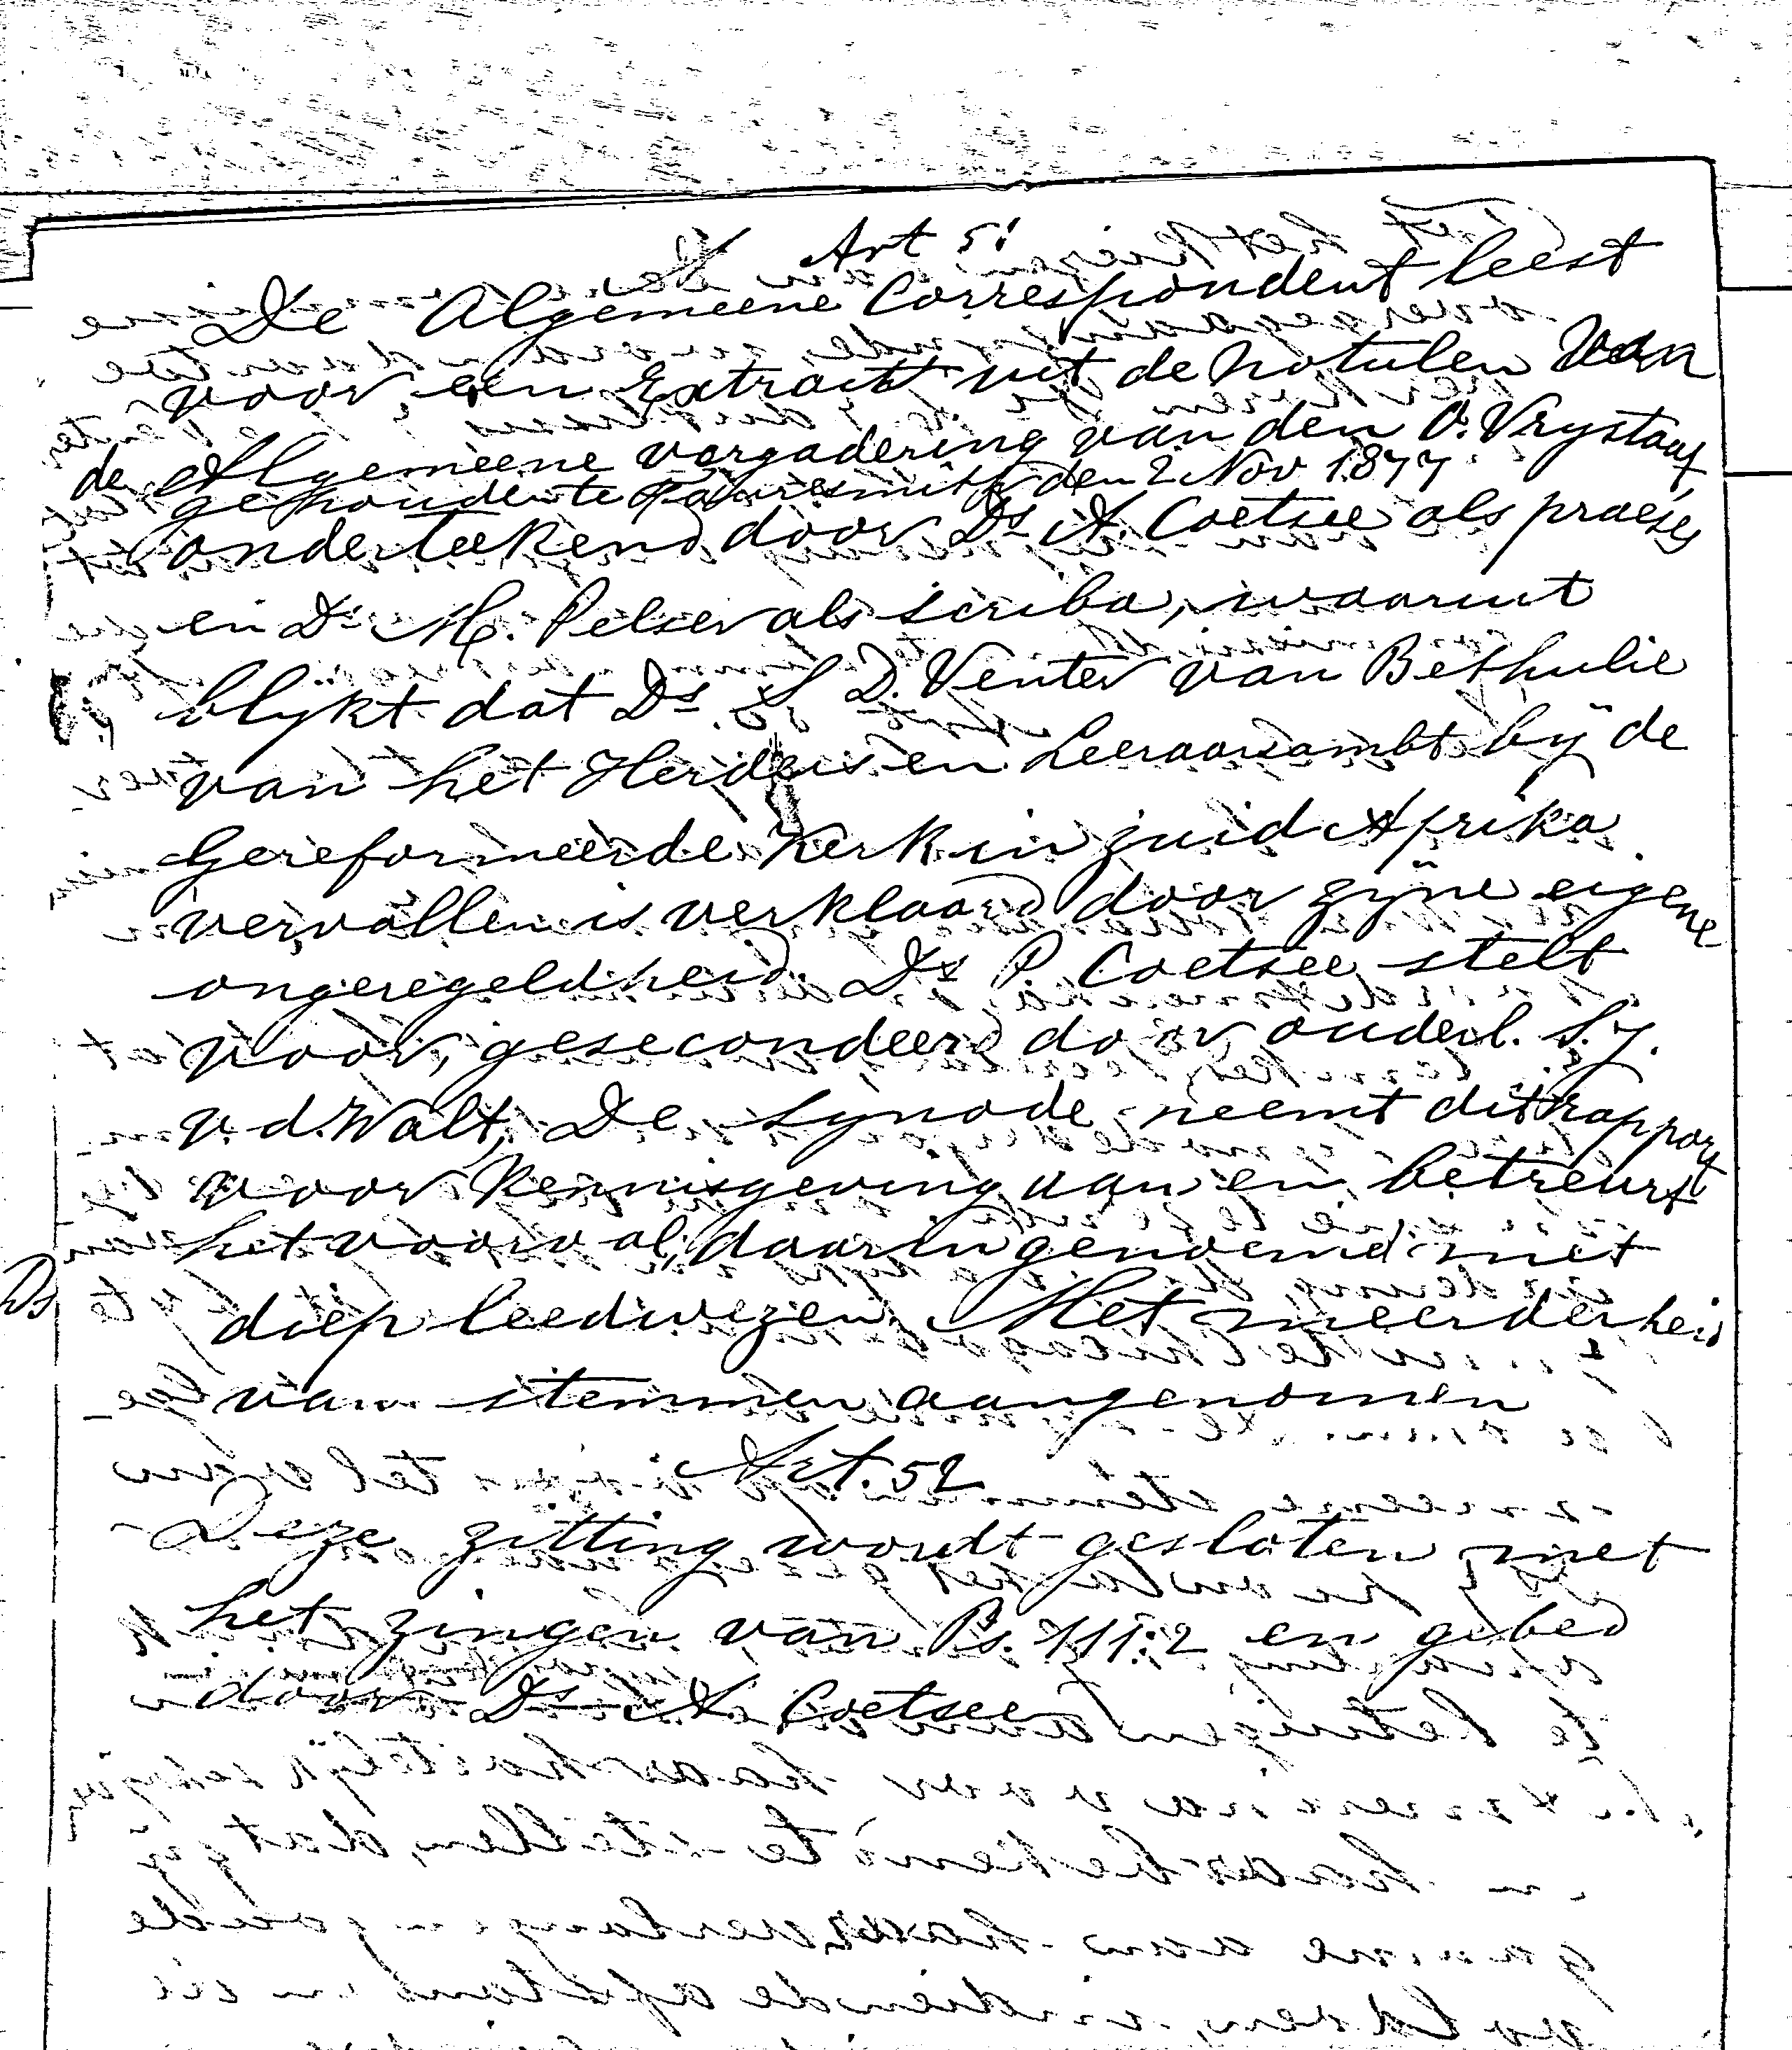 Art 51
De Algemeene Correspondent leest
voor een Extract uit de Notulen van
de Algemeene vergadering van den O. Vrystaat
gehouden te Fauresmith den 2 Nov 1877
onderteekend door Ds A. Coetsee als praeses
en Ds M. Pelser als scriba, waaruit
blykt dat Ds. S D. Venter van Bethulie
van het Herders en Leeraarsambt by de
Gereformeerde Kerk in zuid Afrika
vervallen is verklaard door zyne eigene
ongeregeldheid. Ds P. Coetsee stelt
voor, gesecondeerd door ouderl. S. J.
v. d. Walt, De Synode neemt dit rapport
voor kennisgeving aan en betreurt
het voorval, daarin genoemd met
Ds
diep leedwezen. Met meerderheid
van stemmen aangenomen
Art. 52
Deze zitting wordt gesloten met
het zingen van Ps. 111:2 en gebed
door Ds A. Coetsee